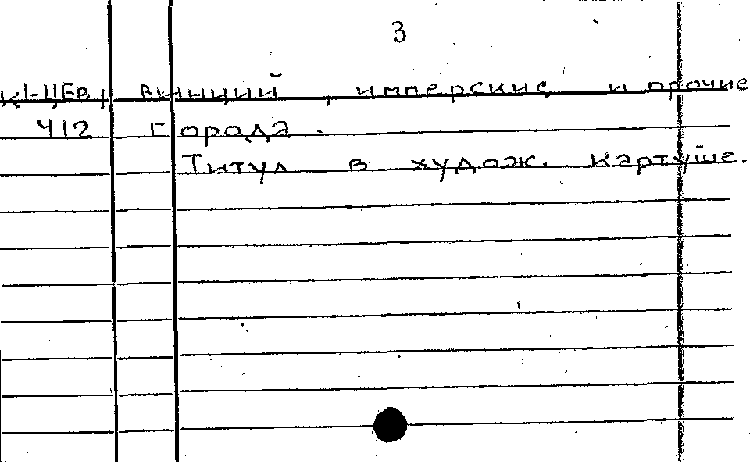 3
К1-ЦЕВ, винций, имперские и прочие
412 города.
Титул в худож. картуше.